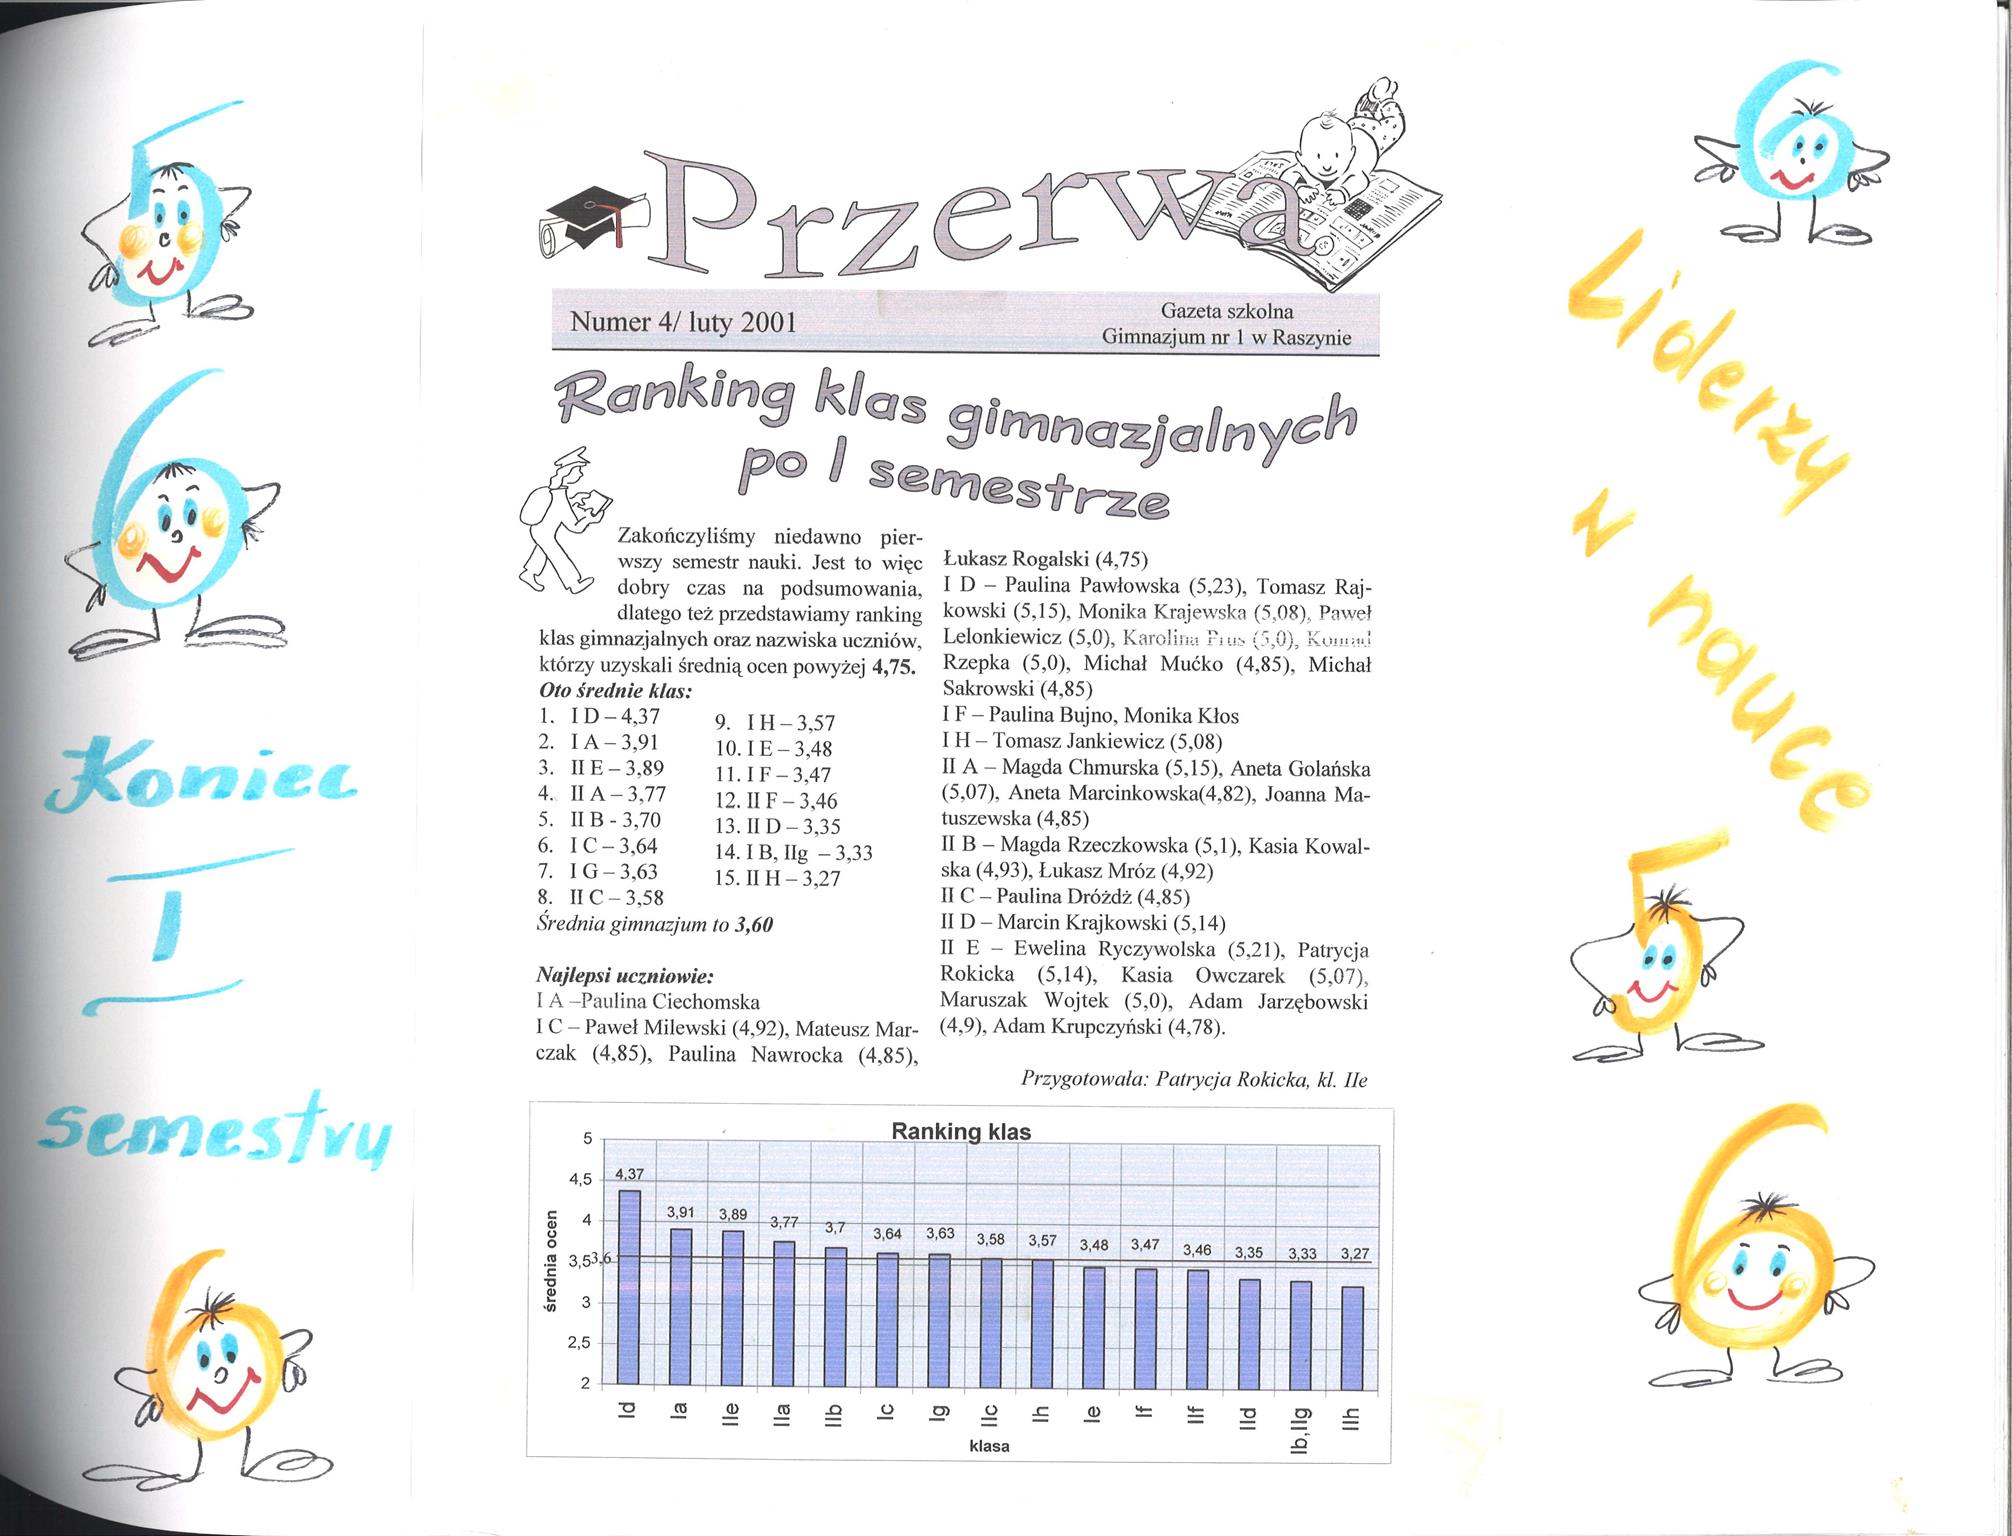 Koniec
I
semestru
Przerwa
Numer 4/ luty 2001
Gazeta szkolna
Gimnazjum nr 1 w Raszynie
Ranking klas gimnazjalnych
po I semestrze
Zakończyliśmy niedawno pier-
wszy semestr nauki. Jest to więc
dobry czas na podsumowania,
dlatego też przedstawiamy ranking
klas gimnazjalnych oraz nazwiska uczniów,
którzy uzyskali średnią ocen powyżej 4,75.
Oto średnie klas:
1. I D – 4,37
2. I A – 3,91
3. II E – 3,89
4. II A – 3,77
5. II B - 3,70
6. I C – 3,64
7. I G – 3,63
8. II C – 3,58
9. I H – 3,57
10. I E – 3,48
11. I F – 3,47
12. II F – 3,46
13. II D – 3,35
14. I B, IIg – 3,33
15. II H – 3,27
Średnia gimnazjum to 3,60
Najlepsi uczniowie:
I A –Paulina Ciechomska
I C – Paweł Milewski (4,92), Mateusz Mar-
czak (4,85), Paulina Nawrocka (4,85),
Łukasz Rogalski (4,75)
I D – Paulina Pawłowska (5,23), Tomasz Raj-
kowski (5,15), Monika Krajewska (5,08), Paweł
Lelonkiewicz (5,0), Karolina Prus (5,0), Konrad
Rzepka (5,0), Michał Mućko (4,85), Michał
Sakrowski (4,85)
I F – Paulina Bujno, Monika Kłos
I H – Tomasz Jankiewicz (5,08)
II A – Magda Chmurska (5,15), Aneta Golańska
(5,07), Aneta Marcinkowska(4,82), Joanna Ma-
tuszewska (4,85)
II B – Magda Rzeczkowska (5,1), Kasia Kowal-
ska (4,93), Łukasz Mróz (4,92)
II C – Paulina Dróżdż (4,85)
II D – Marcin Krajkowski (5,14)
II E – Ewelina Ryczywolska (5,21), Patrycja
Rokicka (5,14), Kasia Owczarek (5,07),
Maruszak Wojtek (5,0), Adam Jarzębowski
(4,9), Adam Krupczyński (4,78).
Przygotowała: Patrycja Rokicka, kl. IIe
Ranking klas
średnia ocen
5
4,5
4
3,5
3,6
3
2,5
2
4,37
3,91
3,89
3,77
3,7
3,64
3,63
3,58
3,57
3,48
3,47
3,46
3,35
3,33
3,27
Id
Ia
IIe
IIa
IIb
Ic
Ig
IIc
Ih
Ie
If
IIf
IId
Ib,IIg
IIh
klasa
Liderzy
w
nauce